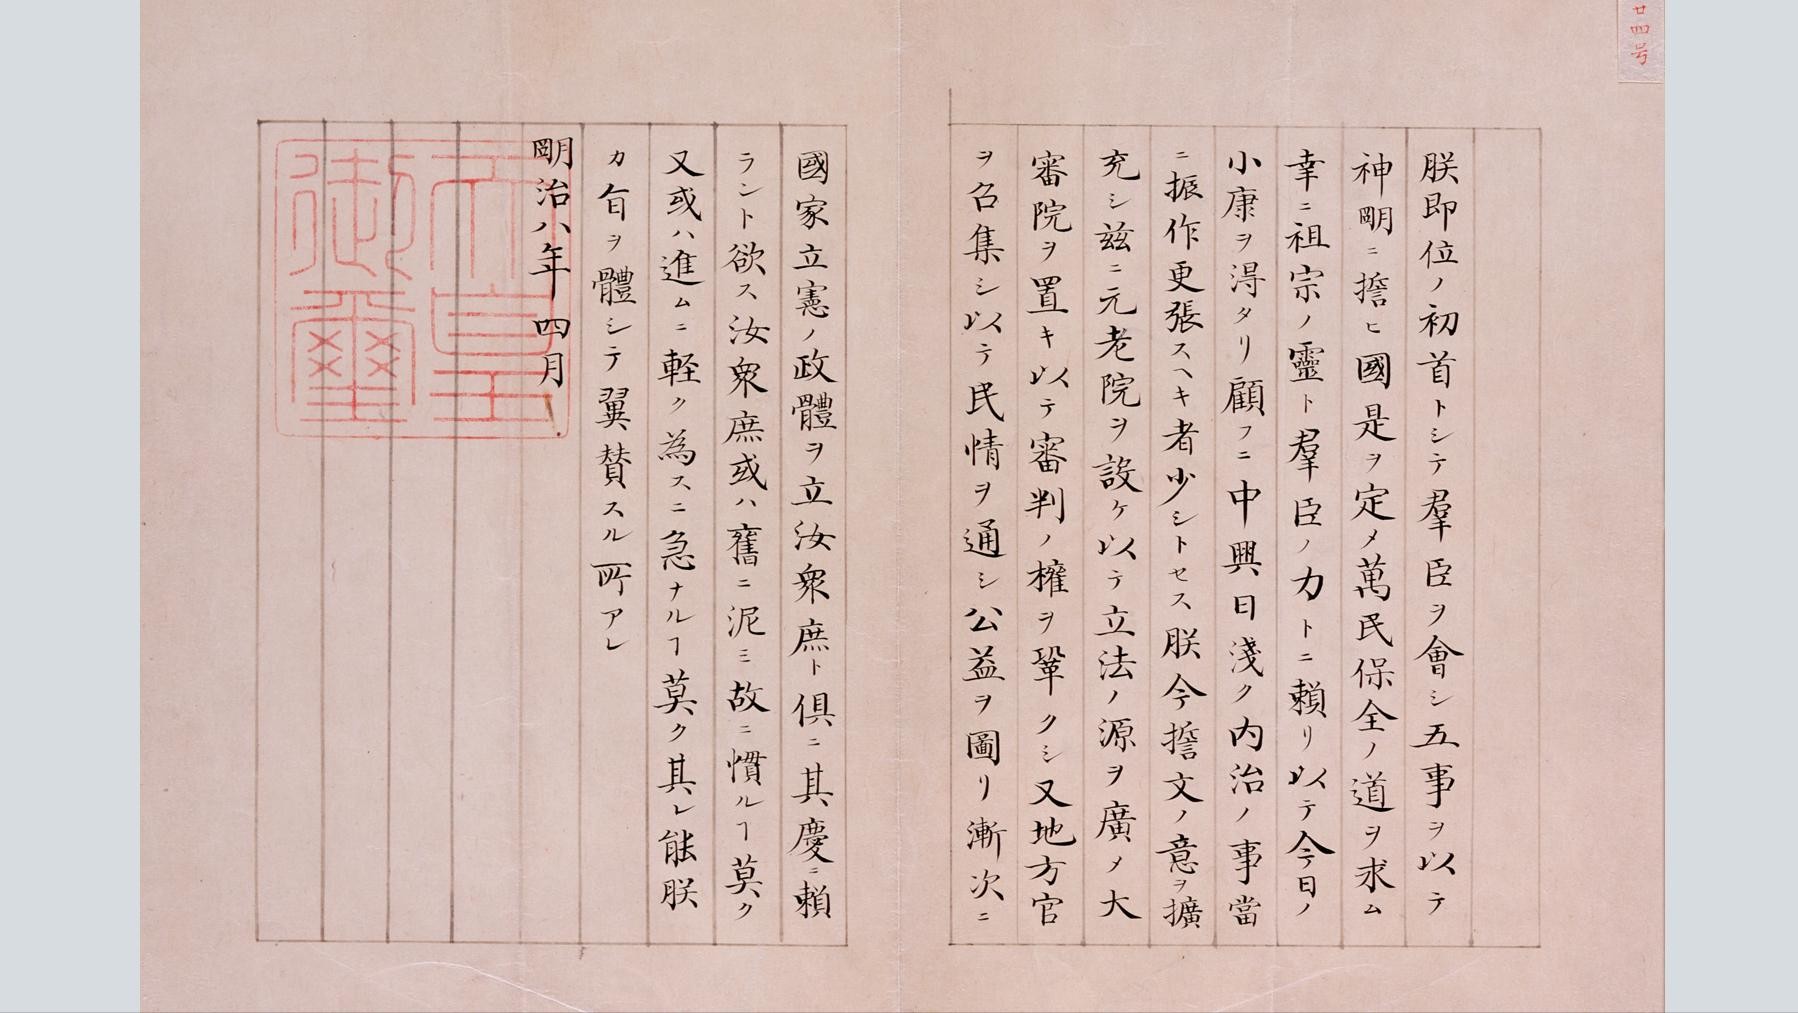 廿四号
朕即位ノ初首トシテ羣臣ヲ會シ五事ヲ以テ
神明ニ誓ヒ國是ヲ定メ萬民保全ノ道ヲ求ム
幸ニ祖宗ノ靈ト羣臣ノ力トニ頼リ以テ今日ノ
小康ヲ得タリ顧フニ中興日淺ク内治ノ事當
ニ振作更張スヘキ者少シトセス朕今誓文ノ意ヲ擴
充シ茲ニ元老院ヲ設ケ以テ立法ノ源ヲ廣メ大
審院ヲ置キ以テ審判ノ權ヲ鞏クシ又地方官
ヲ召集シ以テ民情ヲ通シ公益ヲ圖リ漸次ニ
國家立憲ノ政體ヲ立汝衆庶ト倶ニ其慶ニ頼
ラント欲ス汝衆庶或ハ舊ニ泥ミ故ニ慣ルヿ莫ク
又或ハ進ムニ軽ク為スニ急ナルヿ莫ク其レ能朕
カ旨ヲ體シテ翼賛スル所アレ
明治八年四月
天皇
御璽